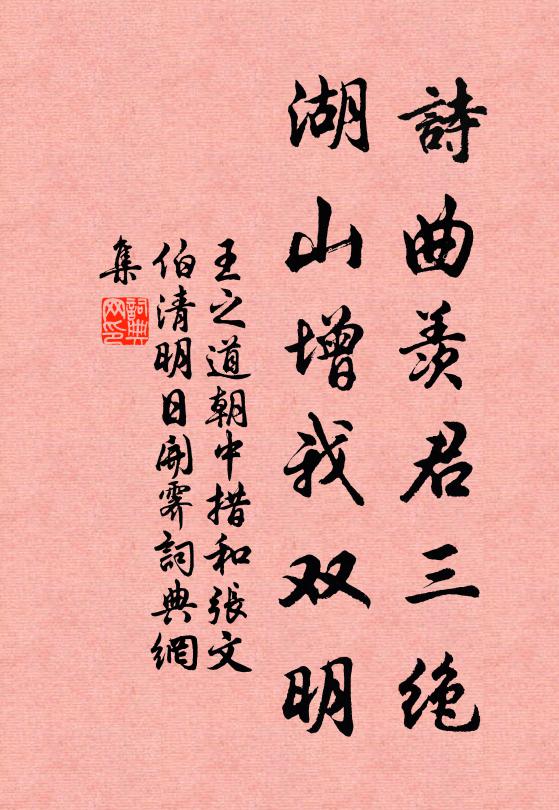 詩曲羨君三絶
湖山增我双明
王之道朝中措和張文
伯清明日開霽詞典網
集
詞典网印